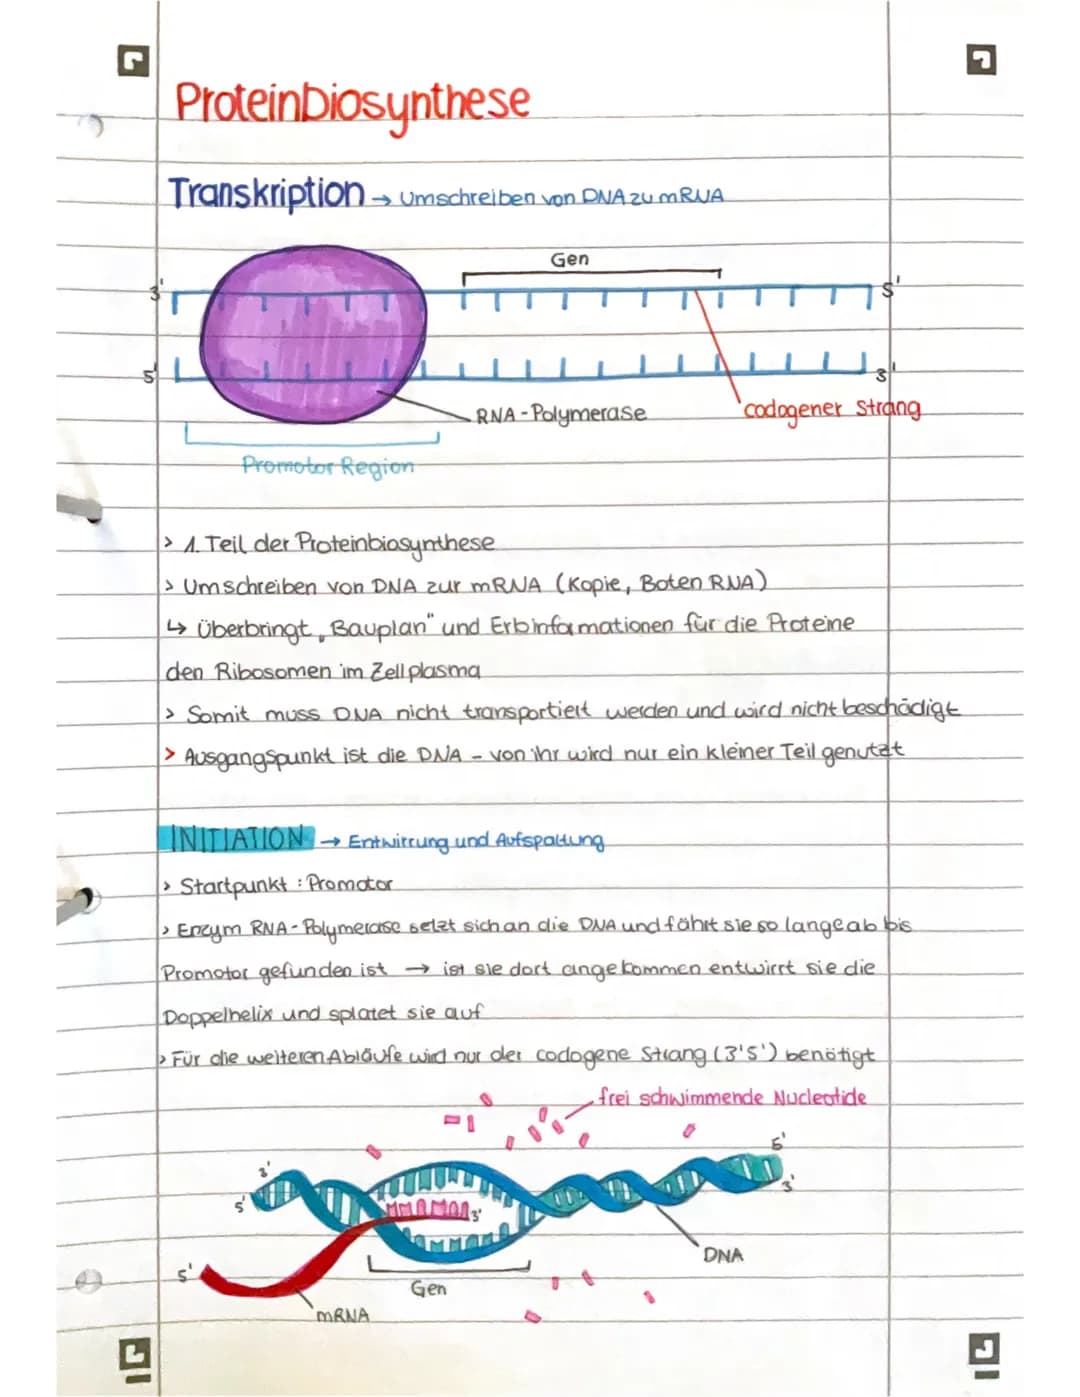 Proteinbiosynthese
Transkription → Umschreiben von DNA zu mRNA
Gen
3' 5'
5' 3'
RNA-Polymerase codogener Strang
Promotor Region
> 1. Teil der Proteinbiosynthese
> Umschreiben von DNA zur mRNA (Kopie, Boten RNA)
↳ Überbringt „Bauplan" und Erbinformationen für die Proteine
den Ribosomen im Zellplasma
> Somit muss DNA nicht transportiert werden und wird nicht beschädigt
> Ausgangspunkt ist die DNA - von ihr wird nur ein kleiner Teil genutzt
INITIATION → Entwirrung und Aufspaltung
> Startpunkt : Promotor
> Enzym RNA-Polymerase setzt sich an die DNA und fährt sie so lange ab bis
Promotor gefunden ist → ist sie dort angekommen entwirrt sie die
Doppelhelix und splatet sie auf
> Für die weiteren Abläufe wird nur der codogene Strang (3'5') benötigt
frei schwimmende Nucleotide
3' 5'
5' 3'
3'
5'
DNA
Gen
mRNA